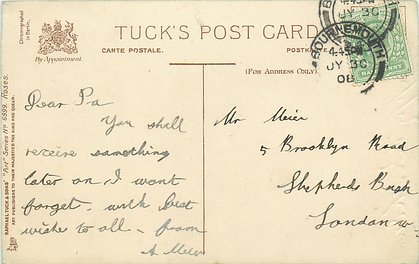 Chromographed
in Berlin.
By Appointment.
TUCK'S POST CARD
CARTE POSTALE.
POSTK
(FOR ADDRESS ONLY.)
BOURNEMOUTH
4.45PM
JY 30
08
RAPHAEL TUCK & SONS' "Art" Series No 6399 Roses.
ART PUBLISHERS TO THEIR MAJESTIES THE KING AND QUEEN.
Dear Pa
You shall
receive something
later on I wont
forget. with best
wishes to all. from
A Meier
Mr Meier
5 Brooklyn Road
Shepherds Bush
London W